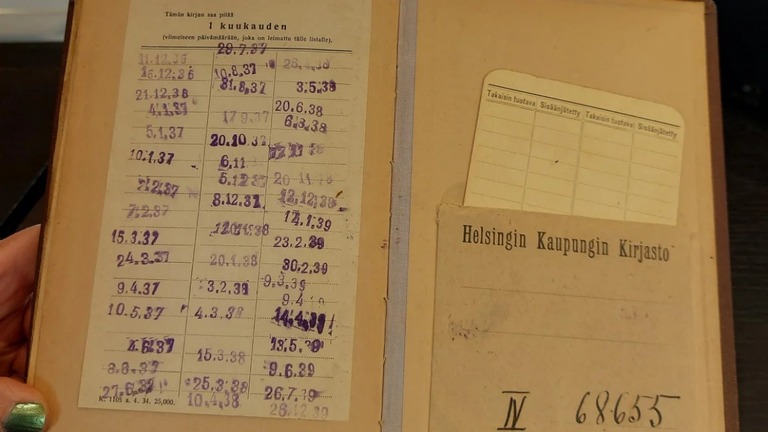 Tämän kirjan saa pitää
1 kuukauden
(viimeiseen päivämäärään, joka on leimattu tälle listalle).
11.12.36
15.12.36
21.12.36
4.1.37
5.1.37
10.1.37
7.2.37
15.3.37
24.3.37
9.4.37
10.5.37
27.6.37
K. 1105 a. 4. 34. 25,000.
29.7.37
10.8.37
31.8.37
17.9.37
20.10.37
6.11
5.12.37
8.12.37
20.1.38
3.2.38
4.3.38
15.3.38
25.3.38
10.4.38
3.5.38
20.6.38
12.12.38
14.1.39
23.2.39
30.2.39
9.3.39
9.4
14.4.39
13.5.39
9.6.39
26.7.39
28.12.39
Takaisin tuotava Sisäänjätetty Takaisin tuotava Sisäänjätetty
Helsingin Kaupungin Kirjasto
IV 68655